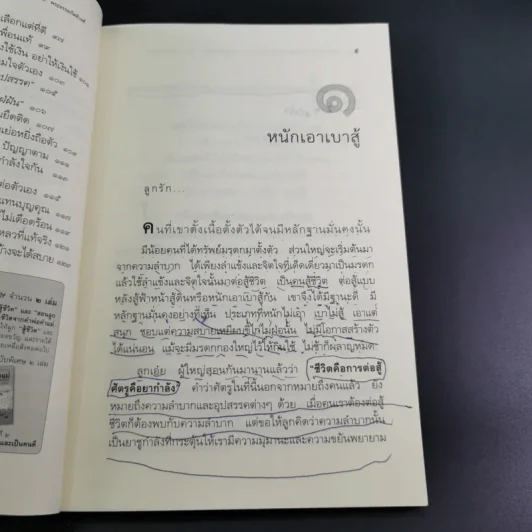 เลือกแต่ที่ดี ๑๗
เพื่อนแท้ ๙๙
ใช้เงิน อย่าให้เงินใช้
๑๐๕
๑๐๖
ปัญญาตาม
ต่อตัวเอง
แทนบุญคุณ
ไม่เดือดร้อน
จำนวน ๒ เล่ม
๕
๑
หนักเอาเบาสู้
ลูกรัก...
คนที่เขาตั้งเนื้อตั้งตัวได้จนมีหลักฐานมั่นคงนั้น
มีน้อยคนที่ได้ทรัพย์มรดกมาตั้งตัว ส่วนใหญ่จะเริ่มต้นมา
จากความลำบาก ได้เพียงลำแข้งและจิตใจที่เด็ดเดี่ยวมาเป็นมรดก
แล้วใช้ลำแข้งและจิตใจนั้นมาต่อสู้ชีวิต เป็นคนสู้ชีวิต ต่อสู้แบบ
หลังสู้ฟ้าหน้าสู้ดินหรือหนักเอาเบาสู้กัน เขาจึงได้มีฐานะดี มี
หลักฐานมั่นคงอย่างที่เห็น ประเภทที่หนักไม่เอ้า เบาไม่สู้ เอาแต่
สนุก ชอบแต่ความสบายเหยียบขี้ไก่ไม่ฝ่อนั้น ไม่มีโอกาสสร้างตัว
ได้แน่นอน แม้จะมีมรดกกองใหญ่ไว้ให้กินใช้ ไม่ช้าก็ผลาญหมด
ลูกเอ๋ย ผู้ใหญ่สอนกันมานานแล้วว่า "ชีวิตคือการต่อสู้
ศัตรูคือยากำลัง" คำว่าศัตรูในที่นี้นอกจากหมายถึงคนแล้ว ยัง
หมายถึงความลำบากและอุปสรรคต่างๆ ด้วย เมื่อคนเราต้องต่อสู้
ชีวิตก็ต้องพบกับความลำบาก แต่ขอให้ลูกคิดว่าความลำบากนั้น
เป็นยาชูกำลังที่กระตุ้นให้เรามีความมุมานะและความขยันพยายาม